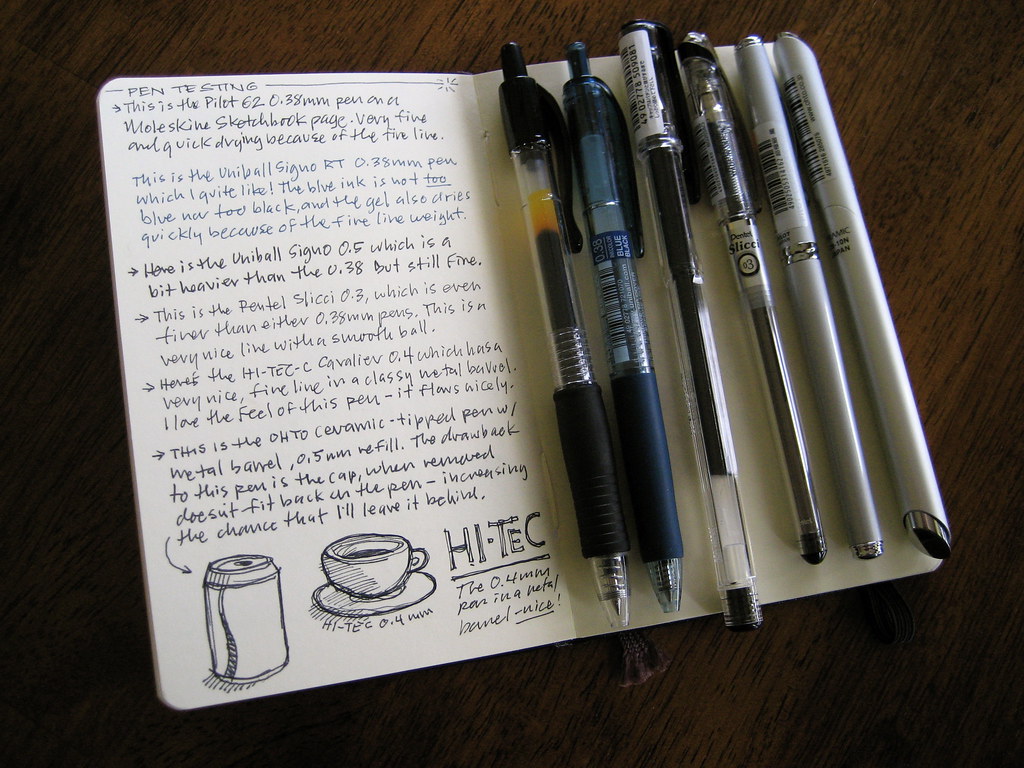 PEN TESTING
→ This is the Pilot G2 0.38mm pen on a
Moleskine Sketchbook page. Very fine
and quick drying because of the fine line.
This is the Uniball Signo RT 0.38mm pen
which I quite like! The blue ink is not too
blue nor too black, and the gel also dries
quickly because of the fine line weight.
→ Here is the Uniball Signo 0.5 which is a
bit heavier than the 0.38 But still fine.
→ This is the Pentel Slicci 0.3, which is even
finer than either 0.38mm pens. This is a
very nice line with a smooth ball.
→ Here's the HI-TEC-C Cavalier 0.4 which has a
very nice, fine line in a classy metal barrel.
I love the feel of this pen - it flows nicely.
→ THIS is the OHTO ceramic-tipped pen w/
metal barrel, 0.5mm refill. The drawback
to this pen is the cap, when removed
doesn't fit back on the pen - increasing
the chance that I'll leave it behind.
HI-TEC 0.4mm
HI-TEC
The 0.4mm
pen in a metal
barrel - nice!
0.38
BLUE
BLACK
4902778 509081
Pentel
Slicci
03